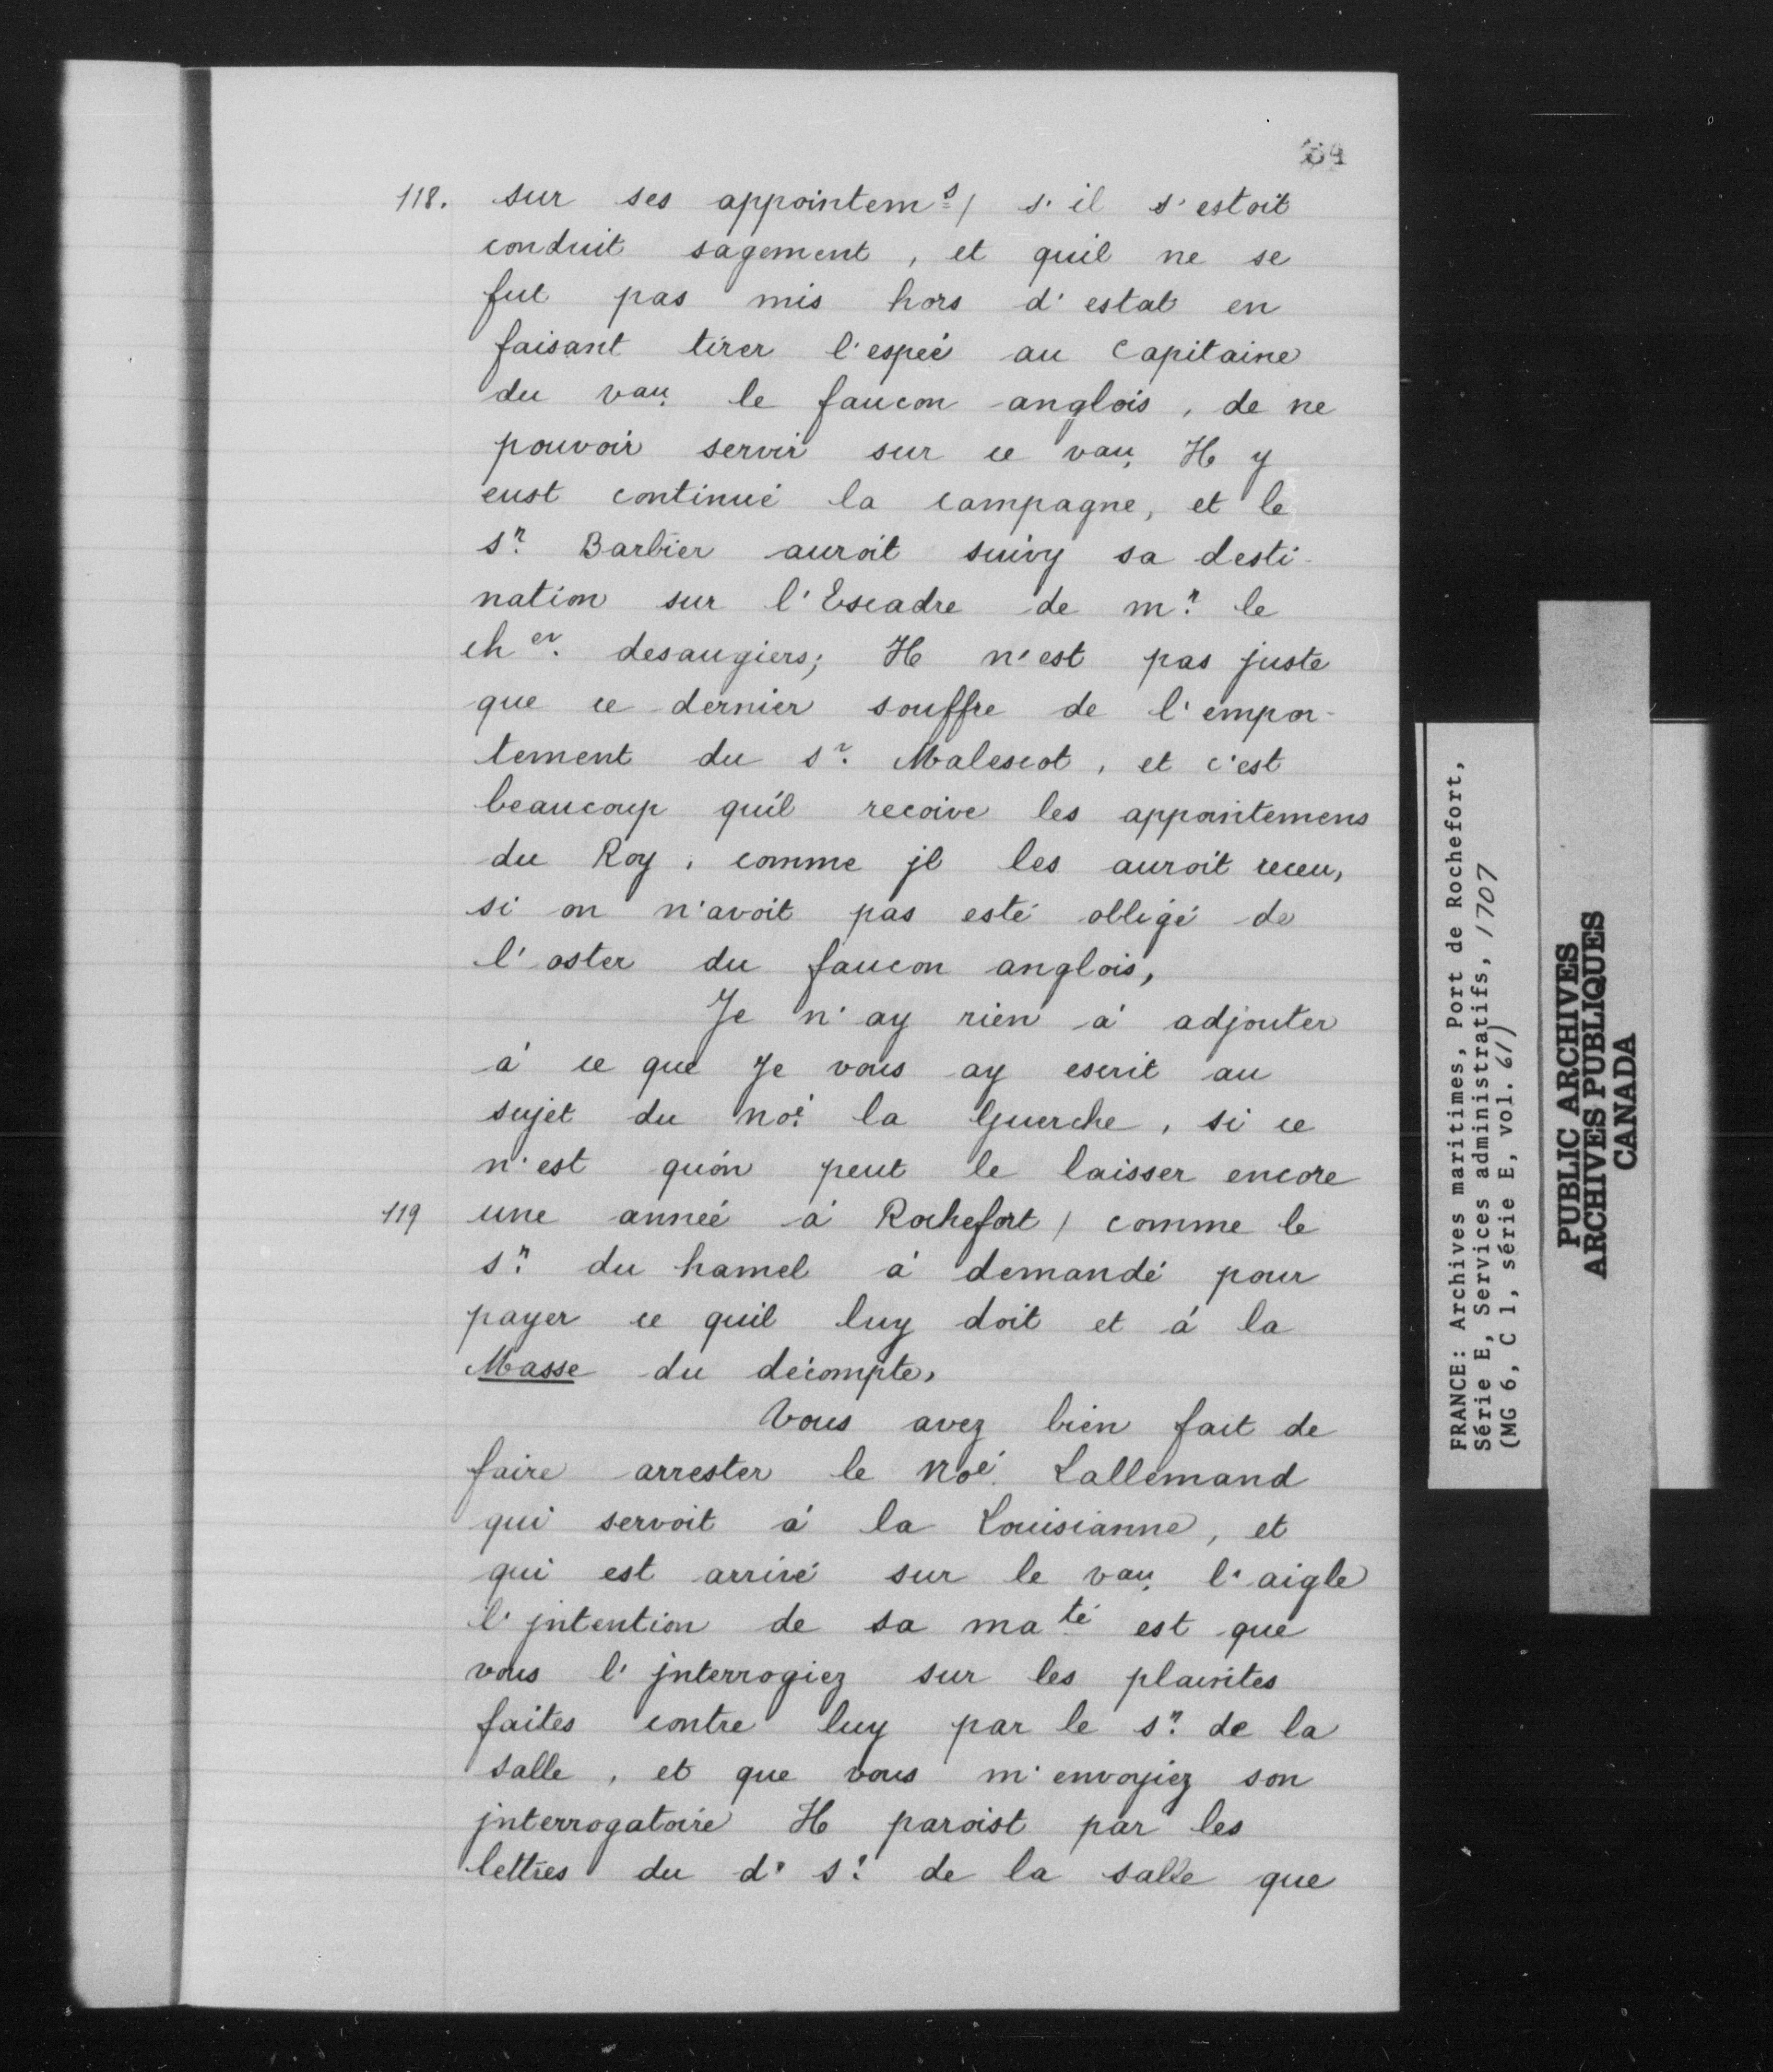 34
118. sur ses appointem.s / s'il s'estoit
conduit sagement, et quil ne se
fut pas mis hors d'estat en
faisant tirer l'espeé au Capitaine
du vau. le faucon anglois, de ne
pouvoir servir sur ce vau. Il y
eust continué la campagne, et le
s.r Barbier auroit suivy sa desti-
nation sur l'Escadre de m.r le
ch.er desaugiers; Il n'est pas juste
que ce dernier souffre de l'empor-
tement du s.r Malescot, et c'est
beaucoup qu'il recoive les appointemens
du Roy, comme jl les auroit receu,
si on n'avoit pas esté obligé de
l'oster du faucon anglois,
Je n'ay rien à adjouter
à ce que Je vous ay escrit au
sujet du noé. la Guerche, si ce
n'est qu'on peut le laisser encore
119 une anneé à Rochefort / comme le
s.r du hamel à demandé pour
payer ce quil luy doit et à la
Masse du décompte,
Vous avez bien fait de
faire arrester le noé. Lallemand
qui servoit à la Louisianne, et
qui est arrivé sur le vau. l'aigle
l'jntention de sa ma.té est que
vous l'jnterrogiez sur les plaintes
faites contre luy par le s.r de la
salle, et que vous m'envoyiez son
jnterrogatoire Il paroist par les
lettres du d. s.r de la salle que
FRANCE: Archives maritimes, Port de Rochefort,
Série E, Services administratifs, 1707
(MG 6, C 1, série E, vol. 61)
PUBLIC ARCHIVES
ARCHIVES PUBLIQUES
CANADA